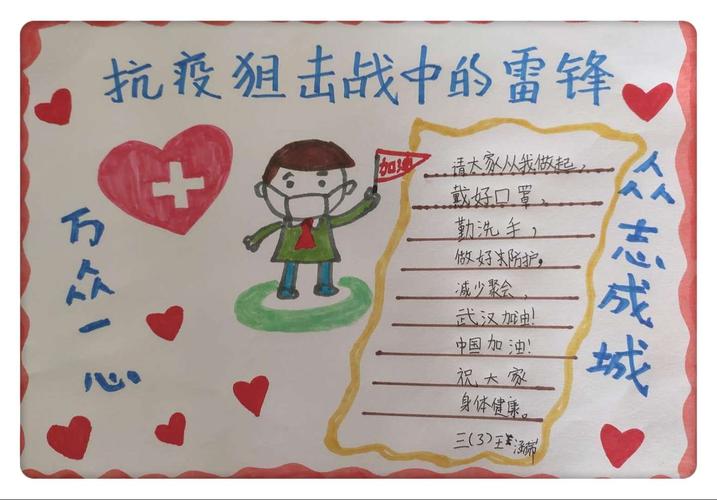 抗疫狙击战中的雷锋
万众一心
加油
请大家从我做起,
戴好口罩、
勤洗手,
做好防护。
减少聚会,
武汉加油!
中国加油!
祝大家
身体健康。
三(3)王
众志成城